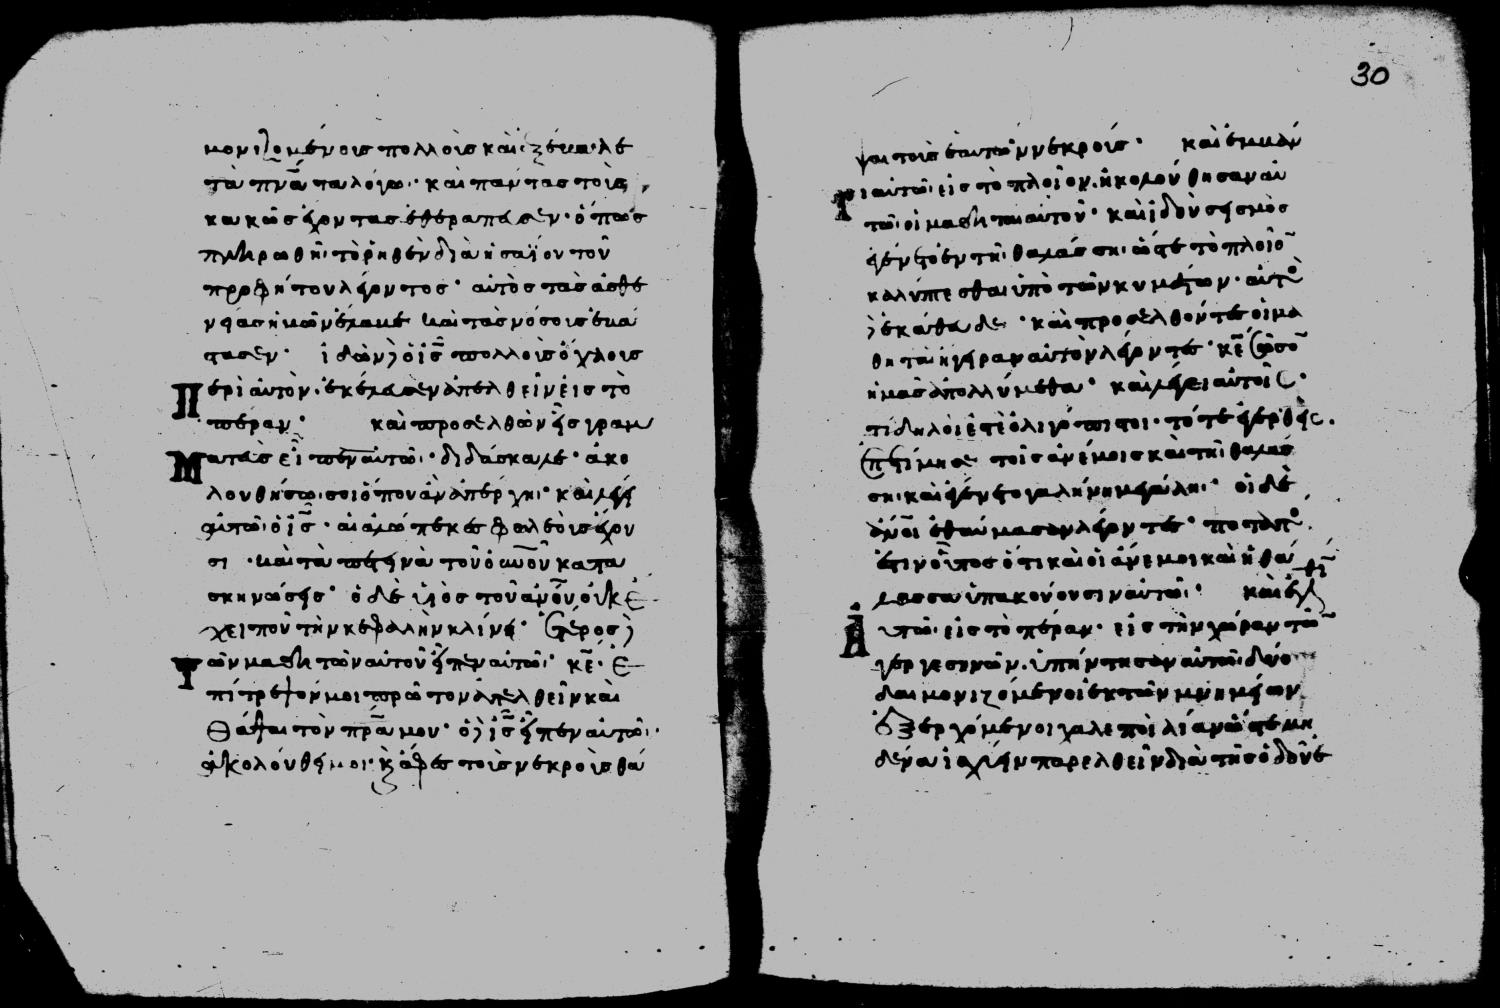 μονιζομένοις πολλοὶς καὶ ἐξέβαλε
τὰ πνᾶτα λόγω· καὶ πάντας τοὺς
κακῶς ἔχοντας ἐθεράπευσεν· ὅπως
πληρωθῆ· τὸ ῥηθὲν διὰ ἡσαΐου τοῦ
προφήτου λέγοντος· αὐτὸς τὰς ἀσθε
νείας ἡμῶν ἔλαβε καὶ τὰς νόσους ἐβά
στασεν· ἰδὼν δὲ ὁ ις πολλοὺς ὄχλους
περὶ αὐτὸν· ἐκέλευσεν ἀπελθεῖν εἰς τὸ
πέραν· καὶ προσελθὼν εἷς γραμ
ματεὺς εἶπεν αὐτῶ· διδάσκαλε· ἀκο
λουθήσω σοι ὅπου ἂν ἀπέρχη· καὶ λέγει
αὐτῶ ὁ ις· αἱ ἀλώπεκες φωλεοὺς ἔχου
σι· καὶ τὰ πετεινὰ τοῦ οὐνοῦ κατα
σκηνώσεις· ὁ δὲ υἱὸς τοῦ ἀνου οὐκ ἔ
χει ποῦ τὴν κεφαλὴν κλίνει· ἕτερος δὲ
τῶν μαθητῶν αὐτοῦ εἶπεν αὐτῶ· κε· ἐ
πίτρεψόν μοι πρῶτον ἀπελθεῖν καὶ
θάψαι τὸν πρα μου· ὁ δὲ ις εἶπεν αὐτῶ·
ἀκολούθει μοι· καὶ ἄφες τοὺς νεκροὺς θά
30
ψαι τοὺς ἑαυτῶν νεκρούς· καὶ ἐμβάν
τι αὐτῶ· εἰς τὸ πλοῖον· ἠκολούθησαν αὐ
τῶ οἱ μαθηταὶ αὐτοῦ· καὶ ἰδοὺ σεισμὸς
ἐγένετο ἐν τῆ θαλάσση· ὥστε τὸ πλοῖο
καλύπτεσθαι ὑπὸ τῶν κυμάτων· αὐτὸ
δὲ ἐκάθευδε· καὶ προσελθόντες οἱ μα
θηταὶ ἤγειραν αὐτὸν λέγοντες· κε σῶσο
ἡμᾶς ἀπολλύμεθα· καὶ λέγει αὐτοῖς·
τί δηλοί ἐστε ὀλιγόπιστοι· τότε ἐγερθεὶς·
ἐπετίμησε τοῖς ἀνέμοις καὶ τῆ θαλάσ
ση· καὶ ἐγένετο γαλήνη μεγάλη· οἱ δὲ
ἀνοι ἐθαύμασαν λέγοντες· ποταπό
ἐστιν οὗτος ὅτι καὶ οἱ ἄνεμοι καὶ ἡ θά
λασσα ὑπακούουσιν αὐτῶ· καὶ ἐλθόντι
αὐτῶ· εἰς τὸ πέραν· εἰς τὴν χώραν τῶ
γεργεσηνῶν· ὑπήντησαν αὐτῶ δύο
δαιμονιζόμενοι ἐκ τῶν μνημείων
ἐξερχόμενοι χαλεποὶ λίαν ὥστε μὴ
δένα ἰσχύειν παρελθεῖν διὰ τῆς ὁδοῦ ἐ